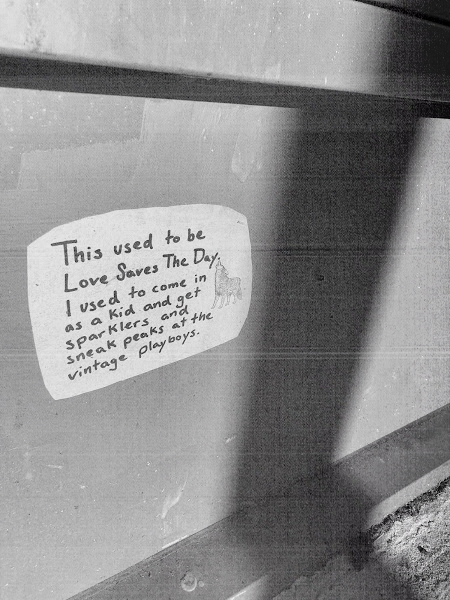 This used to be
Love Saves The Day.
I used to come in
as a kid and get
sparklers and
sneak peaks at the
vintage playboys.